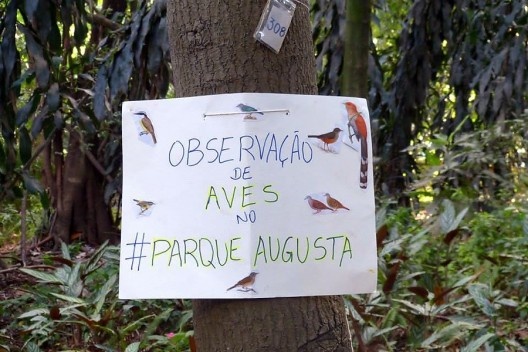 308
OBSERVAÇÃO
DE
AVES
NO
#PARQUE AUGUSTA